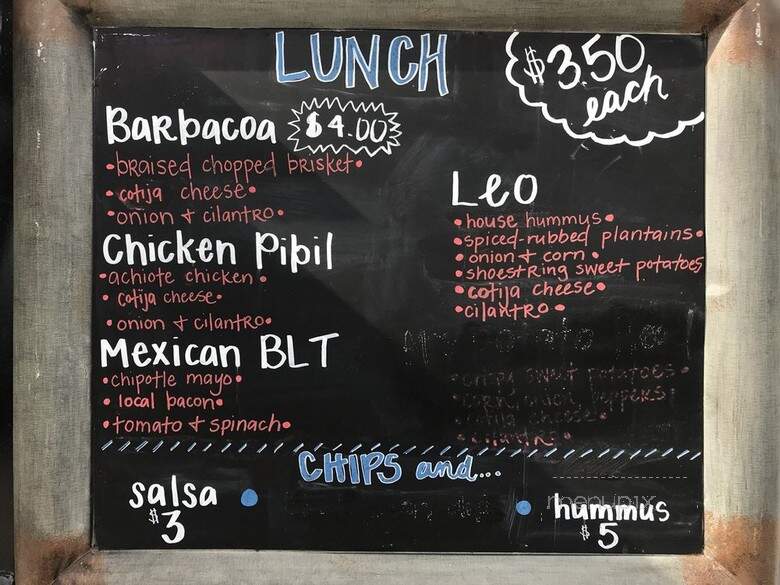 LUNCH
$3.50
each
Barbacoa $4.00
•braised chopped brisket•
•cotija cheese•
•onion + cilantro•
Chicken Pibil
•achiote chicken•
•cotija cheese•
•onion + cilantro•
Mexican BLT
•chipotle mayo•
•local bacon•
•tomato + spinach•
Leo
•house hummus•
•spiced-rubbed plantains•
•onion + corn•
•shoestring sweet potatoes
•cotija cheese•
•cilantro•
•crispy sweet potatoes•
•cotija cheese•
•cilantro•
CHIPS and...
salsa
$3
•
• hummus
$5
menupix